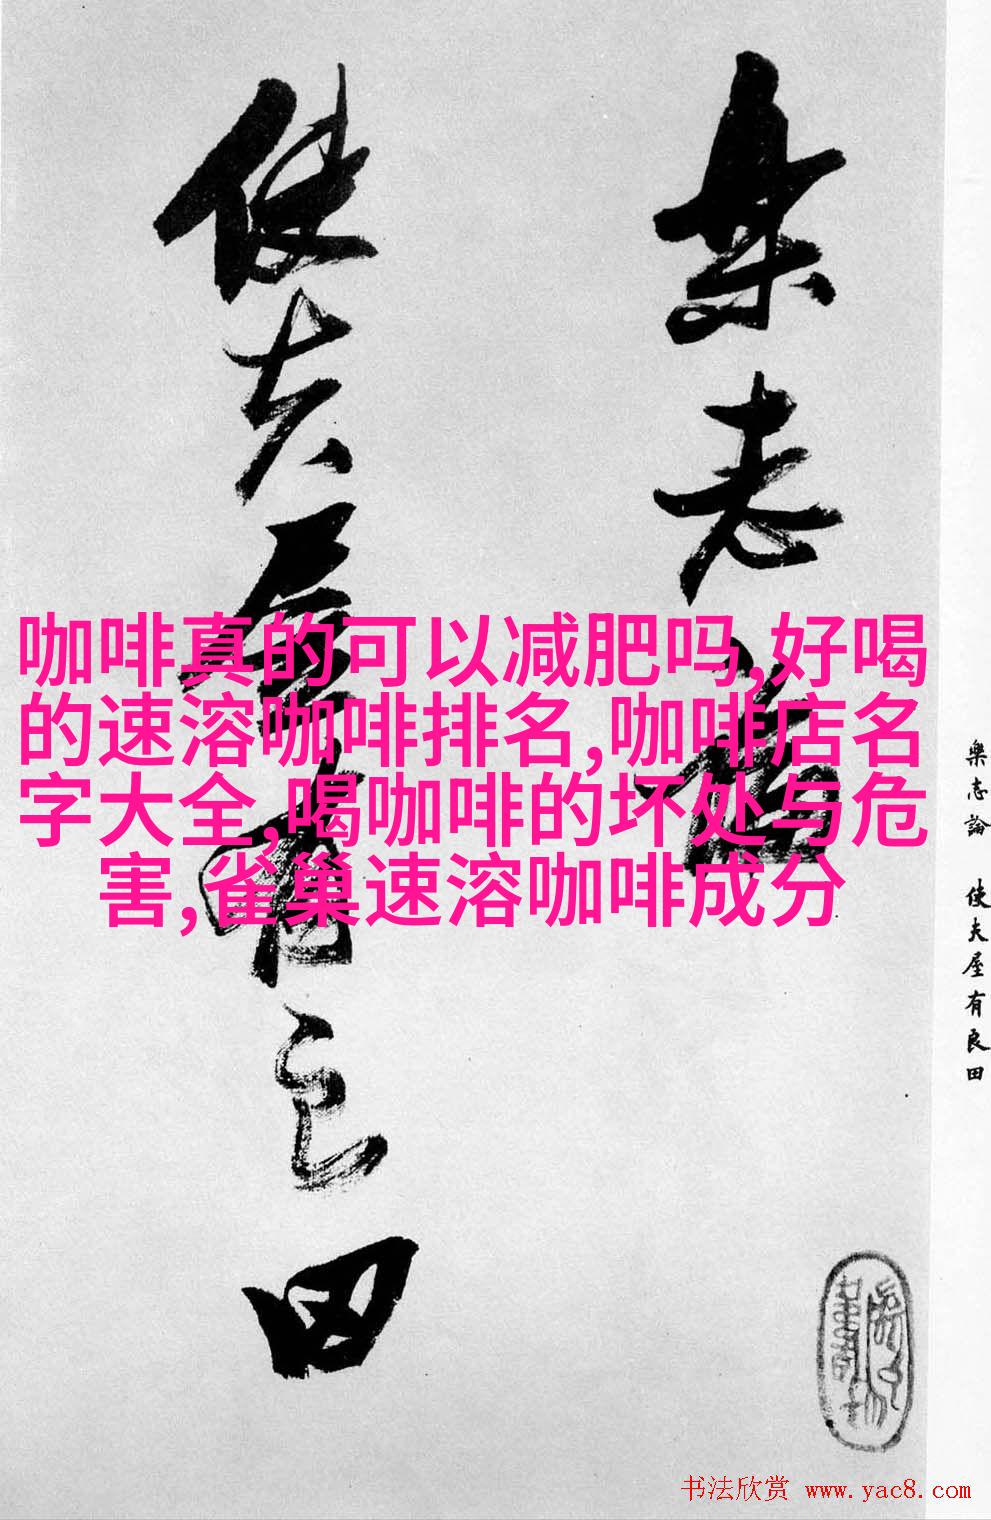 咖啡真的可以减肥吗,好喝
的速溶咖啡排名,咖啡店名
字大全,喝咖啡的坏处与危
害,雀巢速溶咖啡成分
樂志論
使夫居有良田
樂志論 使夫屋有良田
书法欣赏 www.yac8.com